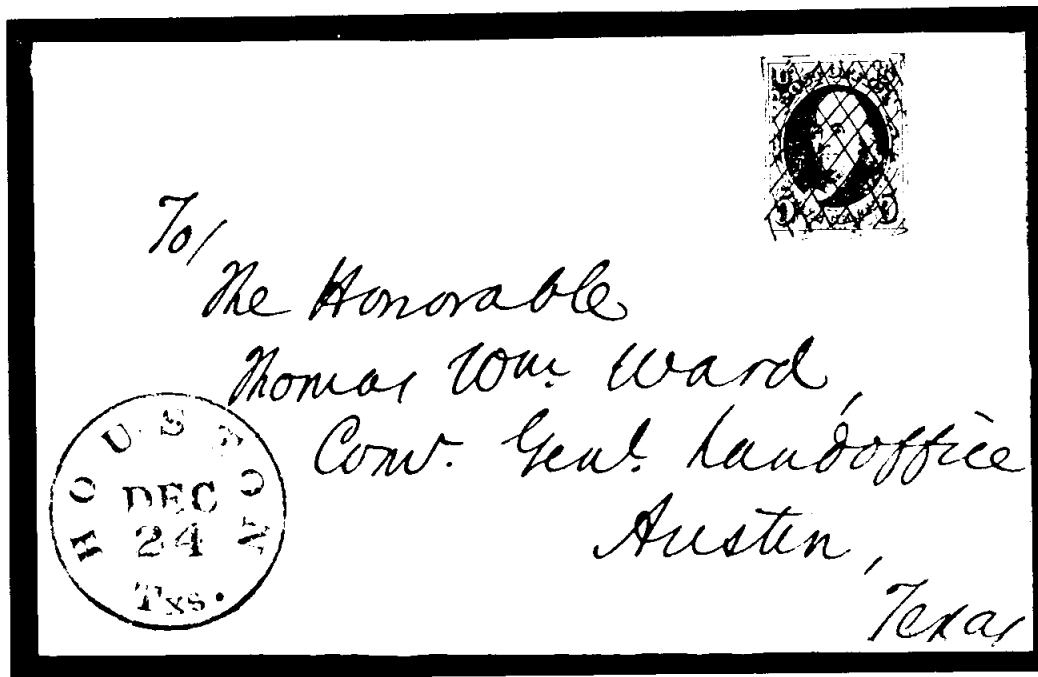 To/
The Honorable
Thomas Wm. Ward,
Comr. Genl. Landoffice
Austin,
Texas
HOUSTON
DEC
24
Txs.
U
POST OFFICE
5 5